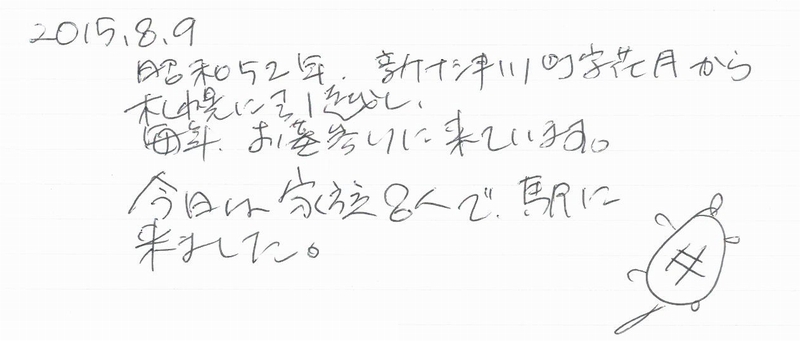 2015.8.9
昭和52年、新十津川町字花月から
札幌に引越し、
毎年、お墓参りに来ています。
今日は家族8人で、駅に
来ました。